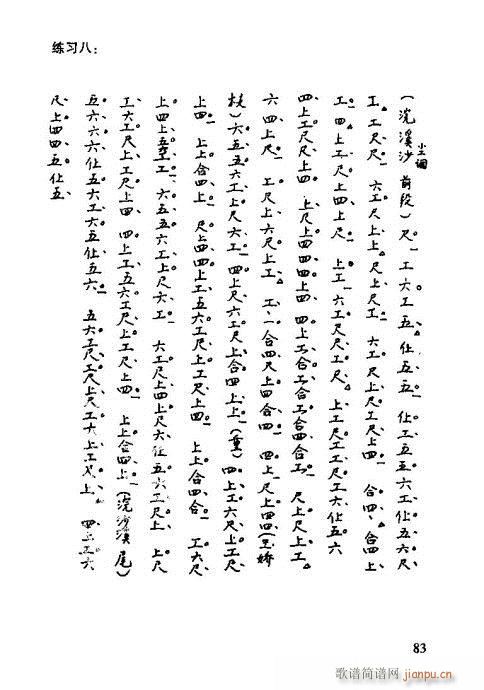 练习八：
（浣溪沙前段）尺 工六工五 仕五五 仕工五五六工仕五六尺
小工调
工 工尺尺 六工尺上上 尺上尺工 六工尺上尺尺上四 合四 合四上
工 四上工尺上四上尺 上工 六工尺尺工尺 上工尺工工尺工六仕五六
四上工尺尺上四 上尺上四四四上四 四上工合工合工合四合工 尺上尺上工
六四上尺 工尺上六尺上工 工 一合四尺上四合四 四上尺上四四（王娇
枝）六五五六工上尺六工 四上尺六工尺上合四上上（重）四上工六尺上工尺
上四 上上合四上 尺上四四上工五六工尺上工尺上四 上上合四合 工六尺
上四上五空工 六五五六工上尺六工 六工尺上四上尺六仕五六工尺上 上尺
工六工尺上工尺上四 四上工五六工尺上工尺上四 上上合四上（浣沙溪尾）
五六六六仕五六工六五仕五六 五六工尺工尺上尺工六上工尺上 四上工六
尺上四四五仕五
83
歌谱简谱网
jianpu.cn